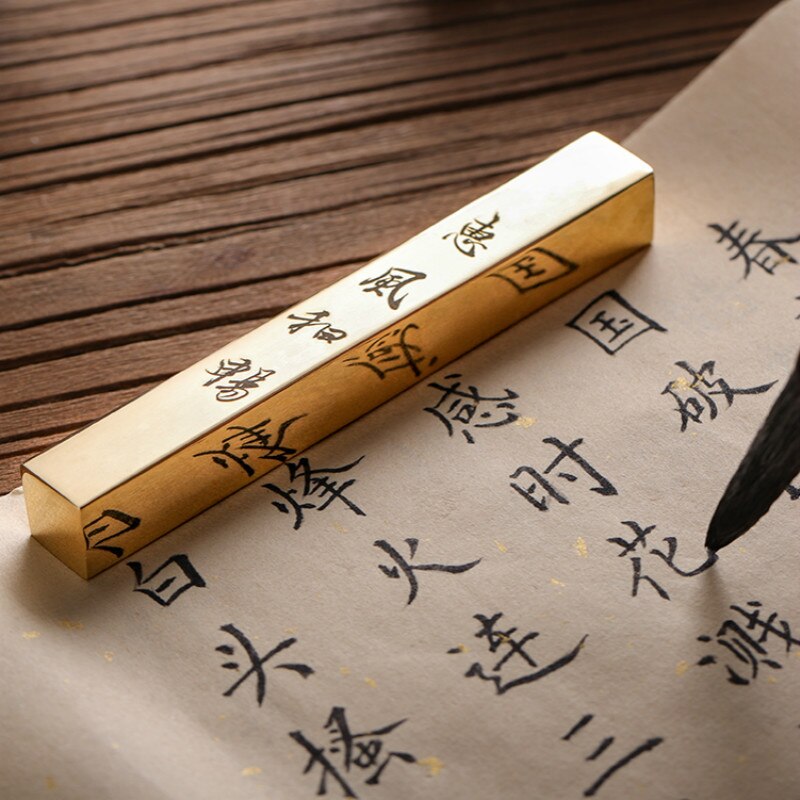 惠風和暢
春
国破
感时花溅
烽火连三
白头搔